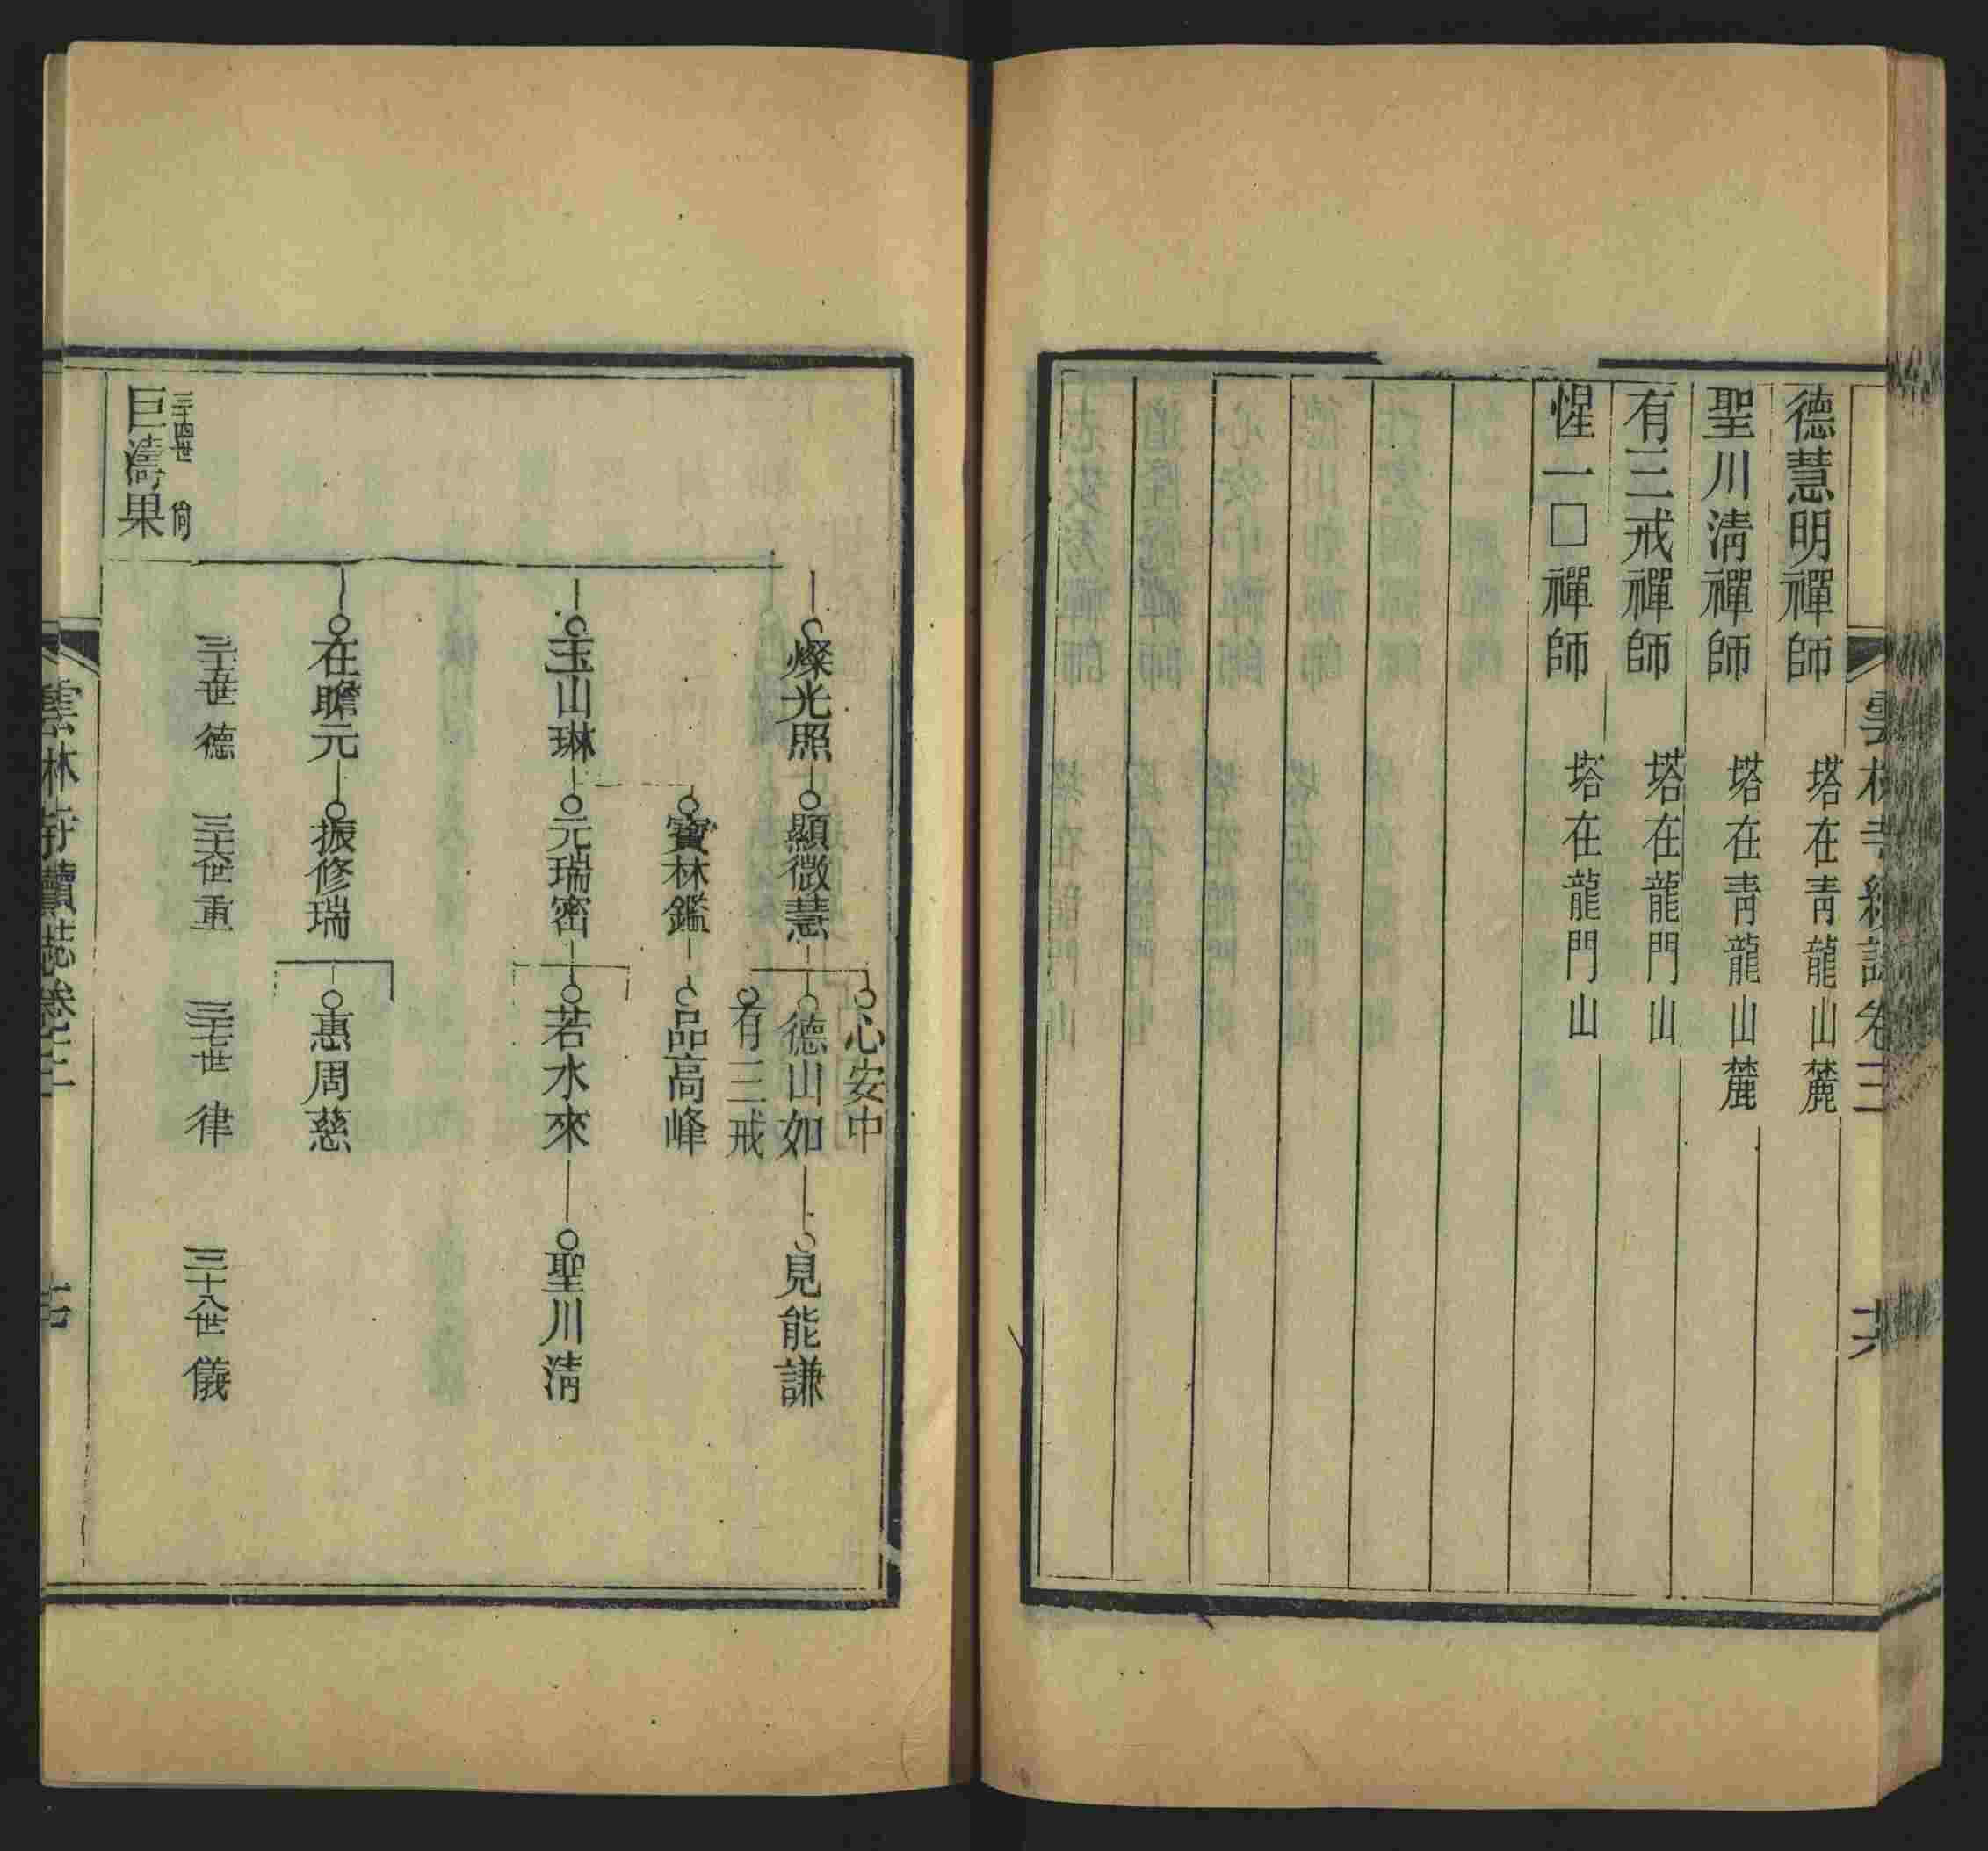 雲林寺續誌卷三
德慧明禪師　塔在青龍山麓
聖川淸禪師　塔在青龍山麓
有三戒禪師　塔在龍門山
惺一□禪師　塔在龍門山
心安中
燦光照　顯微慧　德山如　見能謙
有三戒
寶林鑑　品高峰
玉山琳　元瑞密　若水來　聖川淸
在瞻元　振修瑞　惠周慈
三十五世　德　三十六世　重　三十七世　律　三十八世　儀
三十四世　尙
巨濤果
雲林寺續誌卷三